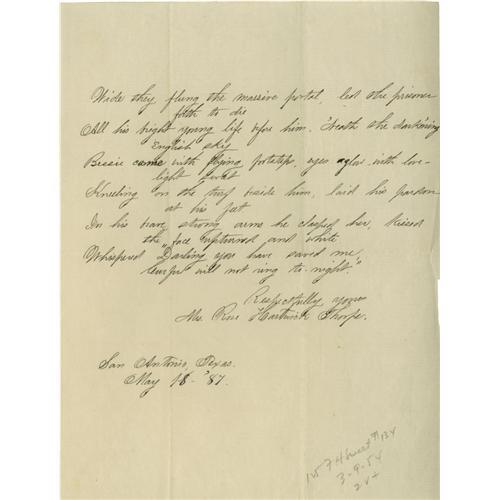 Wide they flung the massive portal, led the prisoner
forth to die
All his bright young life before him. 'Neath the dark'ning
English sky
Bessie came with flying footsteps, eyes aglow with love-
light sweet
Kneeling on the turf beside him, laid his pardon
at his feet
In his brave strong arms he clasped her, kissed
the face upturned and white
Whispered "Darling you have saved me,
Curfew will not ring to-night."
Respectfully yours
Mrs. Rose Hartwick Thorpe.
San Antonio, Texas.
May 18 - '87.
3-9-54